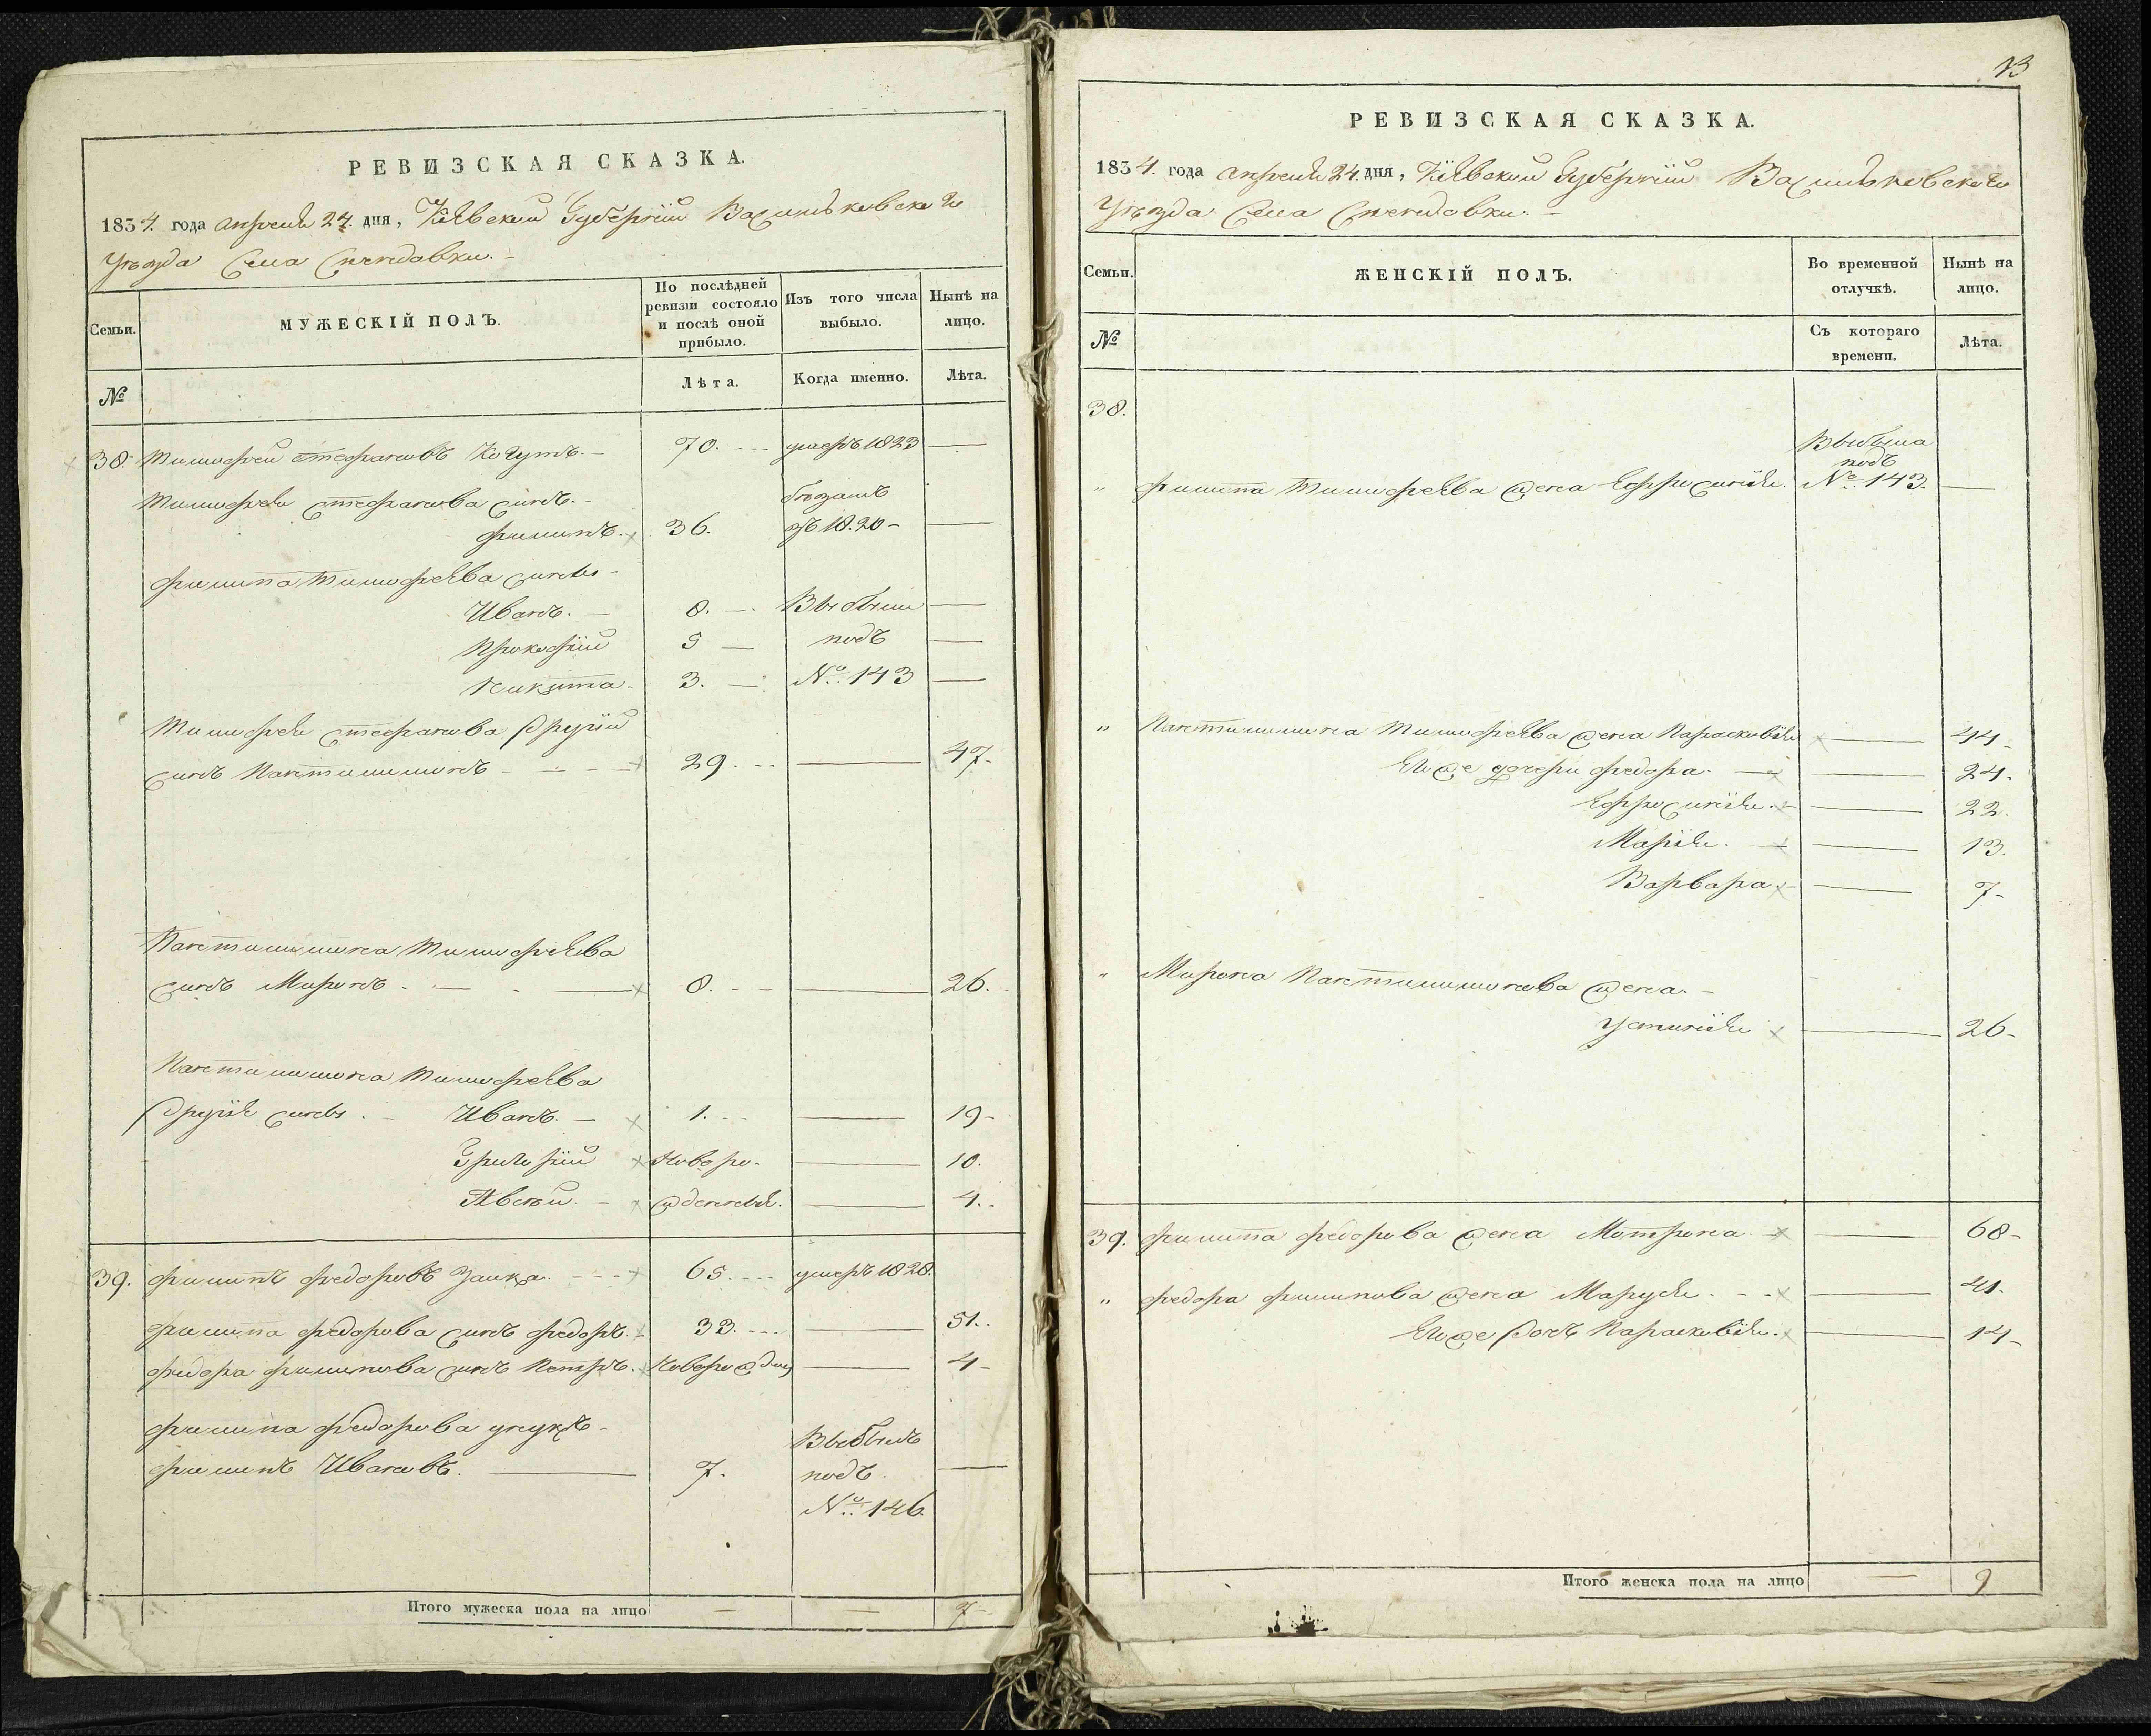 РЕВИЗСКАЯ СКАЗКА.
1834. года апреля 24. дня, Кіевской Губерніи Васильковскаго
Уѣзда Села
Семьи.
МУЖЕСКІЙ ПОЛЪ.
По послѣдней ревизіи состояло и послѣ оной прибыло.
Изъ того числа выбыло.
Нынѣ на лицо.
№
Лѣта.
Когда именно.
Лѣта.
38. Тимофей Стефановъ Когутъ. 70. умеръ 1823
Тимофея Стефанова сынъ.
Филипъ. 36. бѣжалъ въ 1820
Филипа Тимофеева сыны
Иванъ. 8. Выбыли
Прокофій 5 подъ
Никита 3. №. 143
Тимофея Стефанова другій
сынъ Пантилимонъ 29. 47.
Пантилимона Тимофеева
сынъ Миронъ 8. 26.
Пантилимона Тимофеева
другія сыны Иванъ. 1. 19
Григорій Новоро- 10.
Авсѣй. жденныя. 4.
39. Филипъ Федоровъ Заика. 65. умеръ 1828.
Филипа Федорова сынъ Федоръ. 33. 51.
Федора Филипова сынъ Петръ. Новорожденъ 4
Филипа Федорова унукъ
Филипъ Ивановъ. 7. Выбылъ
подъ
№. 146.
Итого мужеска пола на лицо 7
13
РЕВИЗСКАЯ СКАЗКА.
1834. года апреля 24. дня, Кіевской Губерніи Васильковскаго
Уѣзда Села
Семьи.
ЖЕНСКІЙ ПОЛЪ.
Во временной отлучкѣ.
Нынѣ на лицо.
№
Съ котораго времени.
Лѣта.
38.
" Филипа Тимофеева жена Ефросинія. Выбыла подъ №. 143.
" Пантилимона Тимофеева жена Параскевія 44
Его же дочери Федора. 24.
Ефросинія. 22.
Марія. 13.
Варвара 7
" Мирона Пантилимонова жена.
Устинія 26
39. Филипа Федорова жена Мотрона. 68
" Федора Филипова жена Маруся. 41.
Его же дочь Параскевія. 14
Итого женска пола на лицо 9